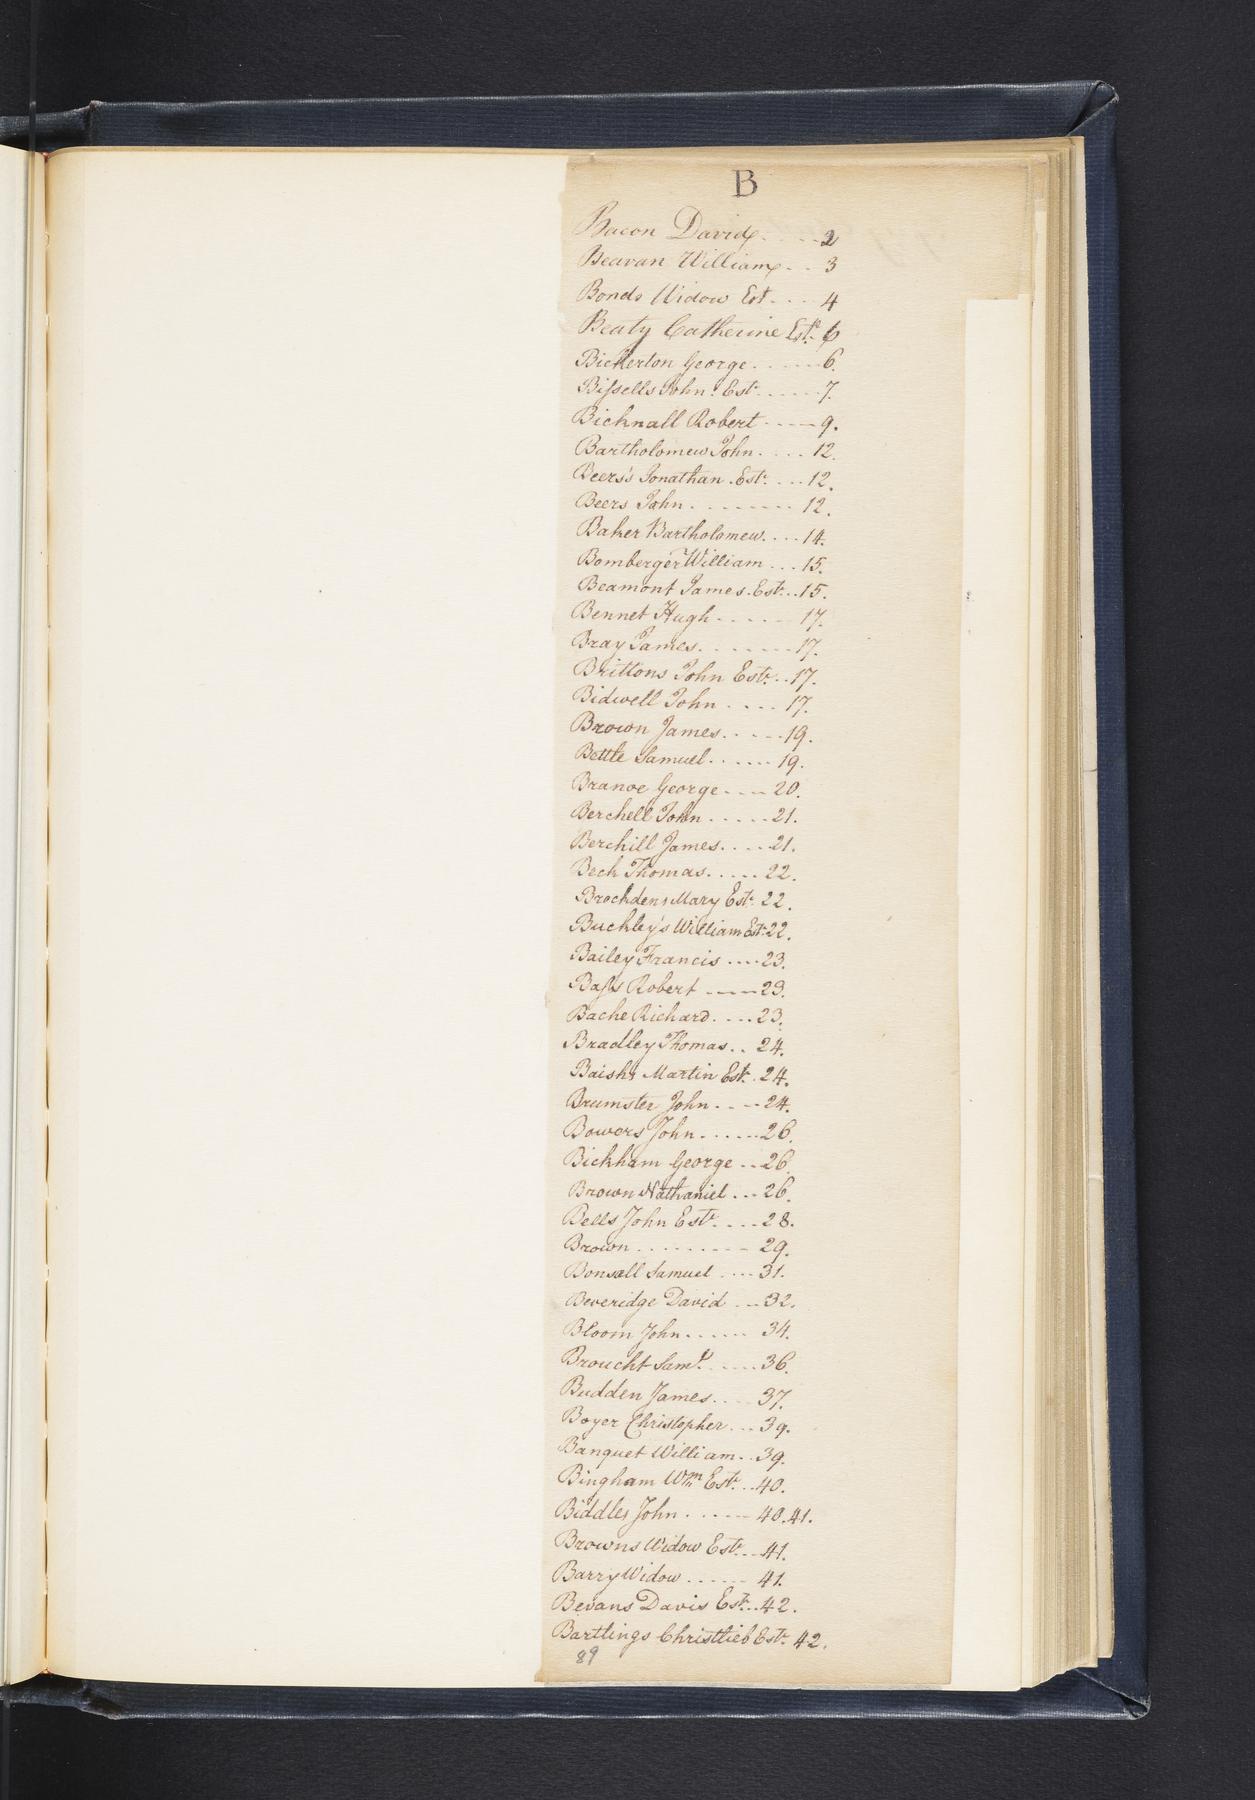 B
Bacon David . . . . . 2
Beavan William . . . 3
Bonds Widow Est . . . . 4
Beaty Catherine Estr. 6
Bickerton George . . . . . . 6.
Bissells John. Estr . . . . . . 7.
Bicknall Robert . . . . . 9.
Bartholomew John . . . . 12.
Beers's Jonathan . Estr. . . . 12.
Beers John . . . . . . . . . 12.
Baker Bartholomew . . . . 14.
Bomberger William . . . 15.
Beamont James . Estr. . . 15.
Bennet Hugh . . . . . . 17.
Bray James . . . . . . . . 17.
Brittons John Estr. . . 17.
Bidwell John . . . . 17.
Brown James . . . . . 19.
Bettle Samuel . . . . . . 19.
George . . . . 20.
Berchell John . . . . . 21.
Berchill James . . . . 21.
Beck Thomas . . . . . 22.
Brockdens Mary Estr. 22.
Buckley's William Estr. 22.
Bailey Francis . . . . 23.
Bass Robert . . . . . 23.
Bache Richard . . . . 23.
Bradley Thomas . . 24.
Baishs Martin Estr. . 24.
Brumster John . . . . 24.
Bowers John . . . . . . 26.
Bickham George . . . 26.
Brown Nathaniel . . . 26.
Bells John Estr . . . . 28.
Brown . . . . . . . . . . 29.
Bonsall Samuel . . . . 31.
Beveridge David . . . 32.
Bloom John . . . . . . 34.
Broucht Saml. . . . . . 36.
Budden James . . . . 37.
Boyer Christopher . . . 39.
Banquet William . . 39.
Bingham Wm Estr. . . 40.
Biddles John . . . . . . 40.41.
Browns Widow Estr. . . 41.
Barry Widow . . . . . . 41.
Bevans Davis Estr. . 42.
Bartlings Christlieb Estr. 42.
89